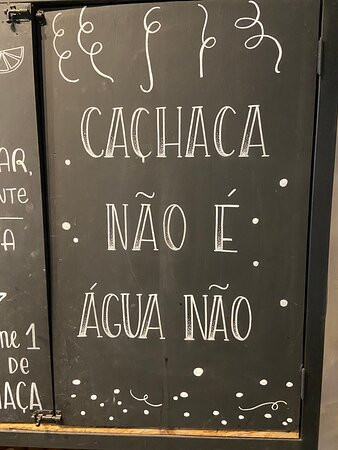 AR,
NTE
A
ne 1
DE
AÇA
CAÇHACA
NÃO É
ÁGUA NÃO